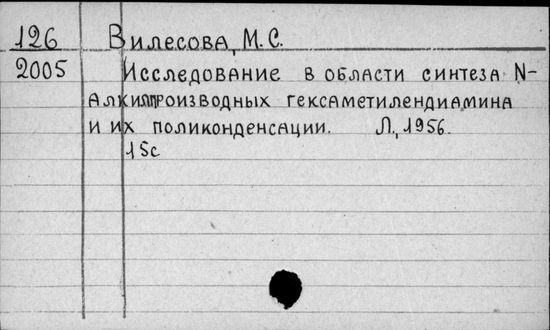 126 Вилесова, М. С.
2005 Исследование в области синтеза N-
алкилпроизводных гексаметилендиамина
и их поликонденсации. Л., 1956.
15с